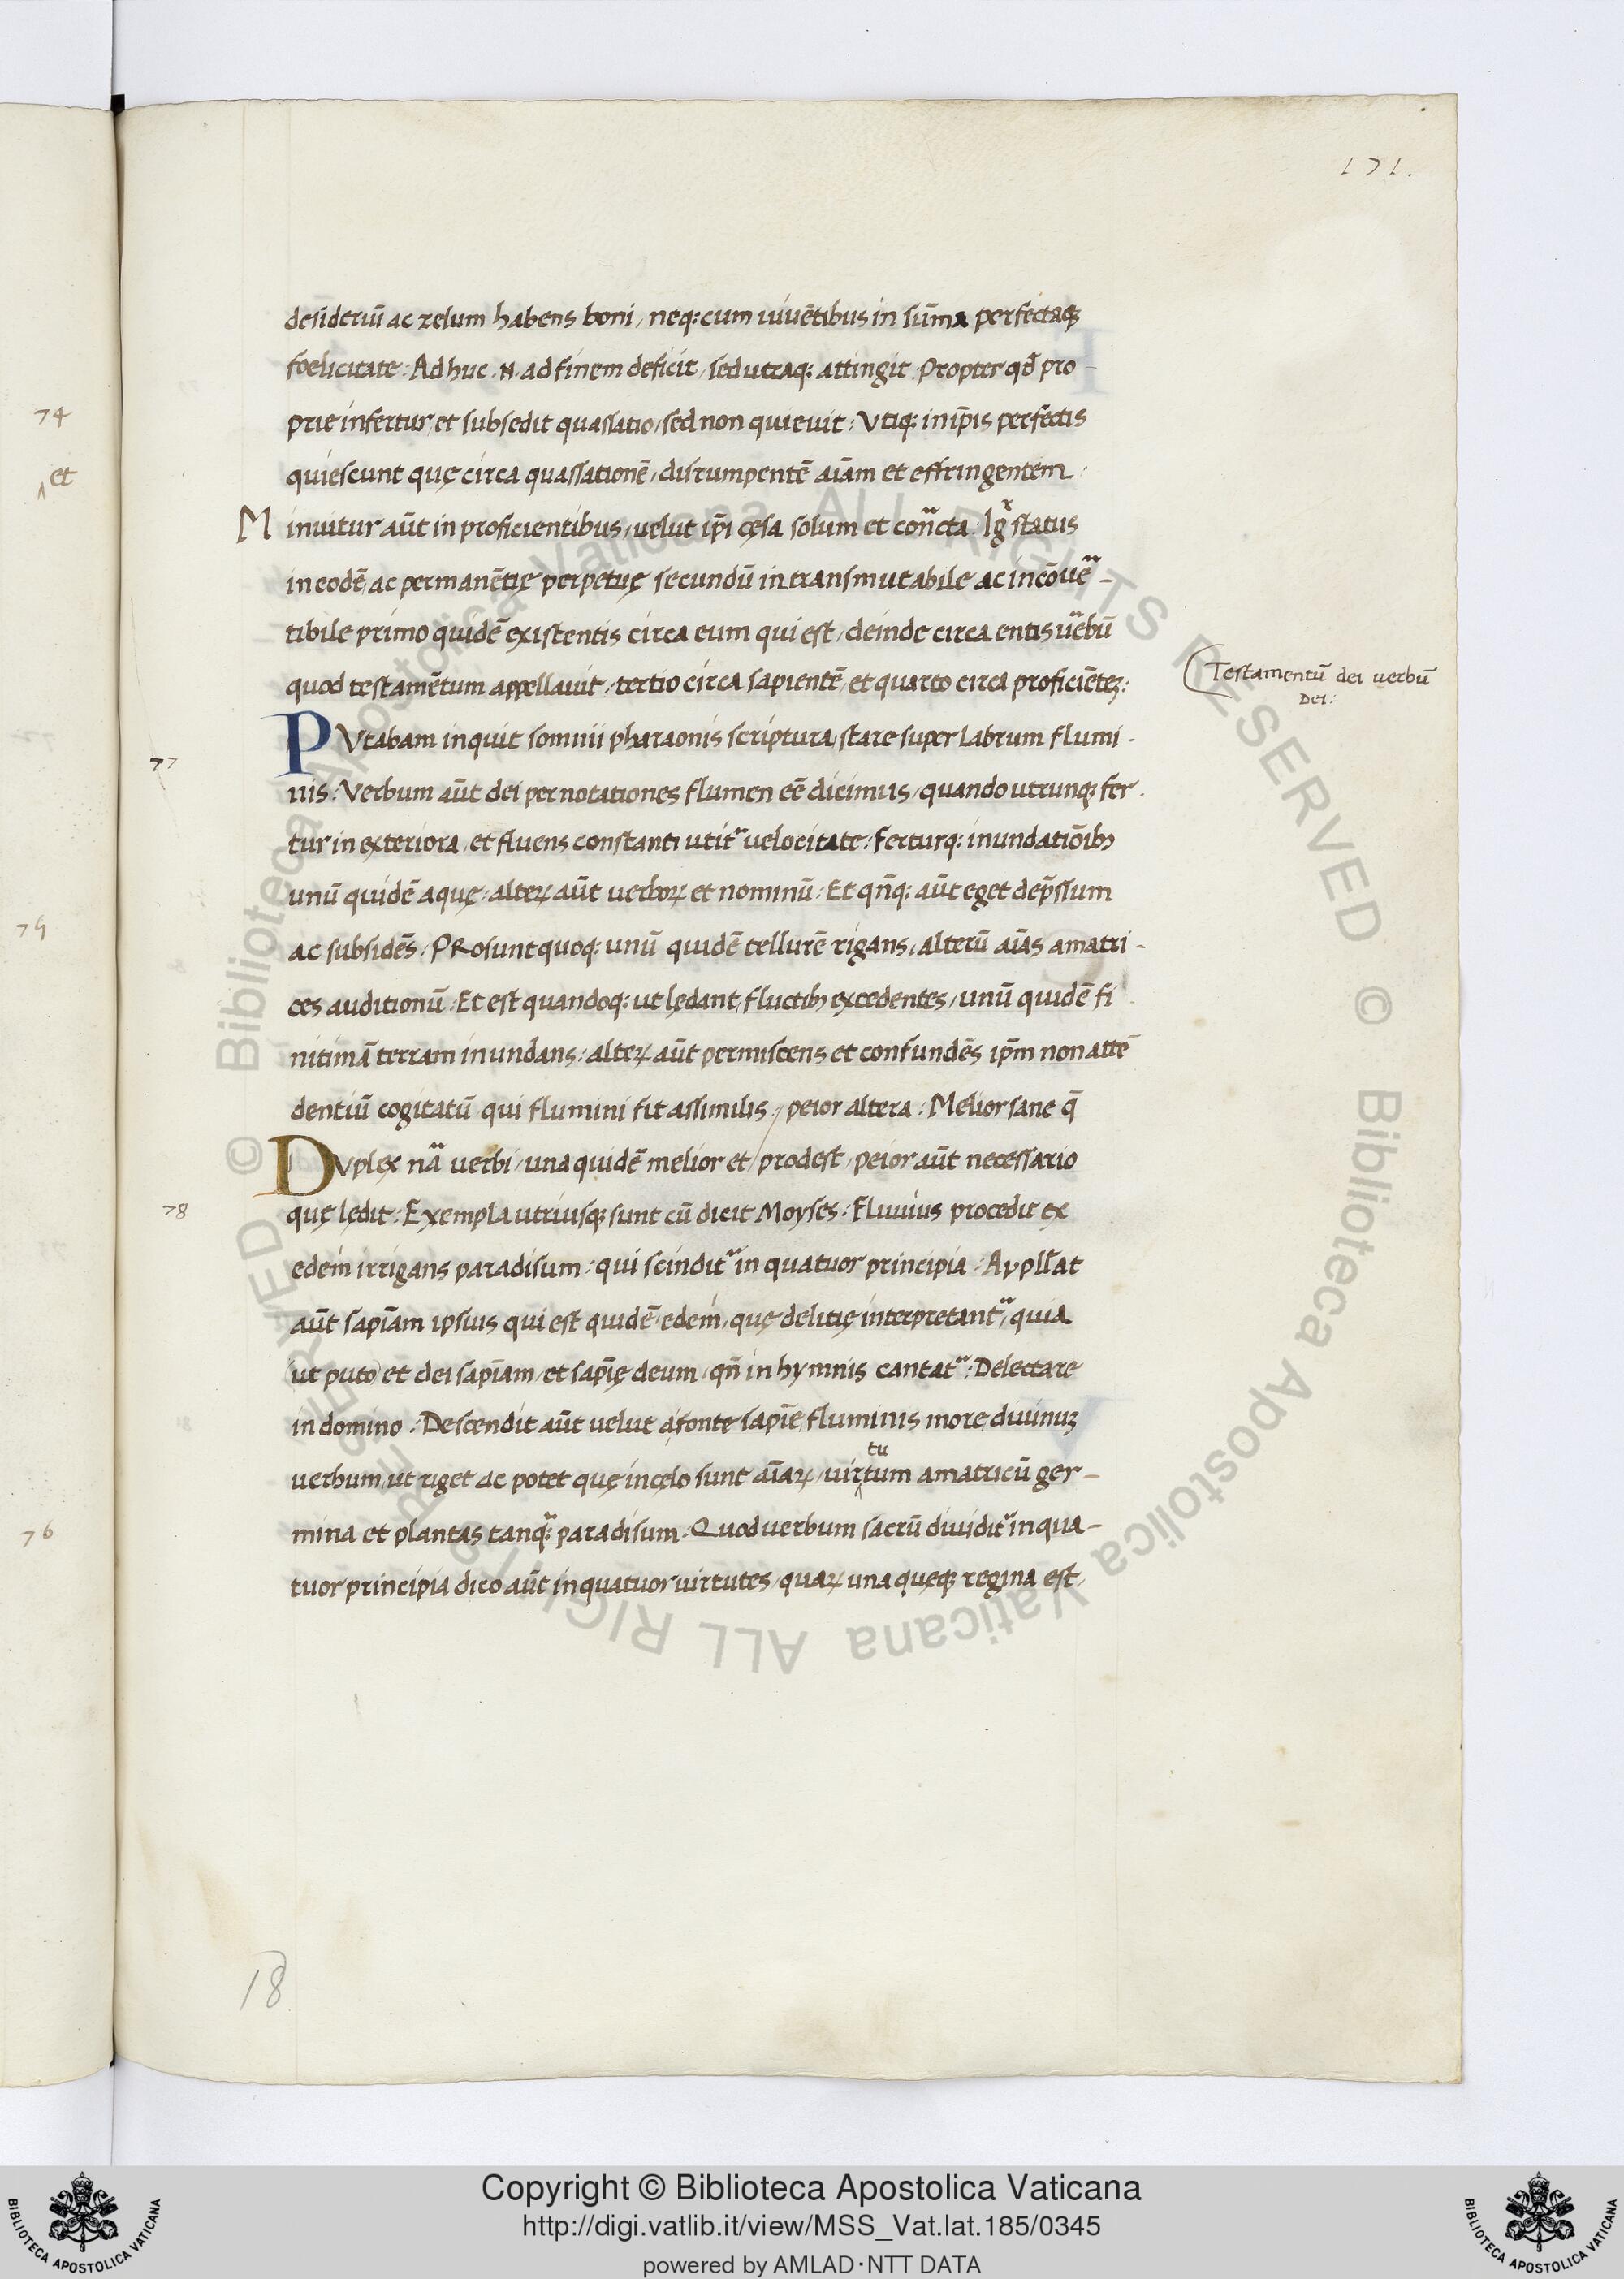 171.
desideriū ac zelum habens boni, neq; cum uiuētibus in sūma perfectaq;
foelicitate: Ad huc .N. ad finem deficit, sed utraq; attingit. Propter qđ pro-
prie infertur, et subsedit quassatio, sed non quieuit: Vtiq; in ip̄is perfectis
quiescunt quę circa quassationē, disrumpentē aīam et effringentem.
Minuitur aūt in proficientibus, uelut ip̄i cęsa solum et conᷓcta. Igͣ status
in eodē, ac permanētię perpetuę secundū intransmutabile ac incōueᷓ-
tibile primo quidē existentis circa eum qui est, deinde circa entis uᷓebū
quod testamētum appellauit, tertio circa sapientē, et quarto circa proficiētez:
Testamentū dei uerbū
Dei:
77
PVtabam inquit somnii pharaonis scriptura, stare super labrum flumi-
nis: Verbum aūt dei pernotationes flumen eē dicimus, quando utrunq; fer-
tur in exteriora, et fluens constanti utitᷓ uelocitate: ferturq; inundatiōib;
unū quidē aquę, alteꝝ aūt uerboꝝ et nominū: Et qn̄q; aūt eget dep̄ssum
ac subsidēs: PRosunt quoq; unū quidē tellurē rigans, alterū aīas amatri-
ces auditionū: Et est quandoq; ut lędant, fluctib; excedentes, unū quidē fi
nitimā terram inundans: alteꝝ aūt permiscens et confundēs ip̄m non attē
dentiū cogitatū qui flumini fit assimilis, / peior altera: Melior sane q̄
DVplex nᷓa uerbi, una quidē melior et / prodest, peior aūt necessario
78
quę lędit: Exempla utriusq; sunt cū dicit Moyses: Fluuius procedit ex
edem irrigans paradisum: qui scinditᷓ in quatuor principia: Appll̄at
aūt sapīam ipsius qui est quidē, edem, quę delitię interpretantᷓ, quia
ut puto et dei sapīam, et sapīę deum, qn̄ in hymnis cantatᷓ: Delectare
in domino: Descendit aūt uelut a fonte sapīe, fluminis more, diuinuz
uerbum, ut riget ac potet quę in cęlo sunt aīaꝝ, uir^tu^tum amatricū ger-
mina et plantas tanqᷓ; paradisum. Quod uerbum sacrū diuiditᷓ in qua-
tuor principia dico aūt in quatuor uirtutes, quaꝝ una quęq; regina est,
18
74
et
79
76
Copyright © Biblioteca Apostolica Vaticana
http://digi.vatlib.it/view/MSS_Vat.lat.185/0345
powered by AMLAD·NTT DATA
BIBLIOTECA APOSTOLICA VATICANA
BIBLIOTECA APOSTOLICA VATICANA
© Biblioteca Apostolica Vaticana ALL RIGHTS RESERVED © Biblioteca Apostolica Vaticana ALL RIGHTS RESERVED